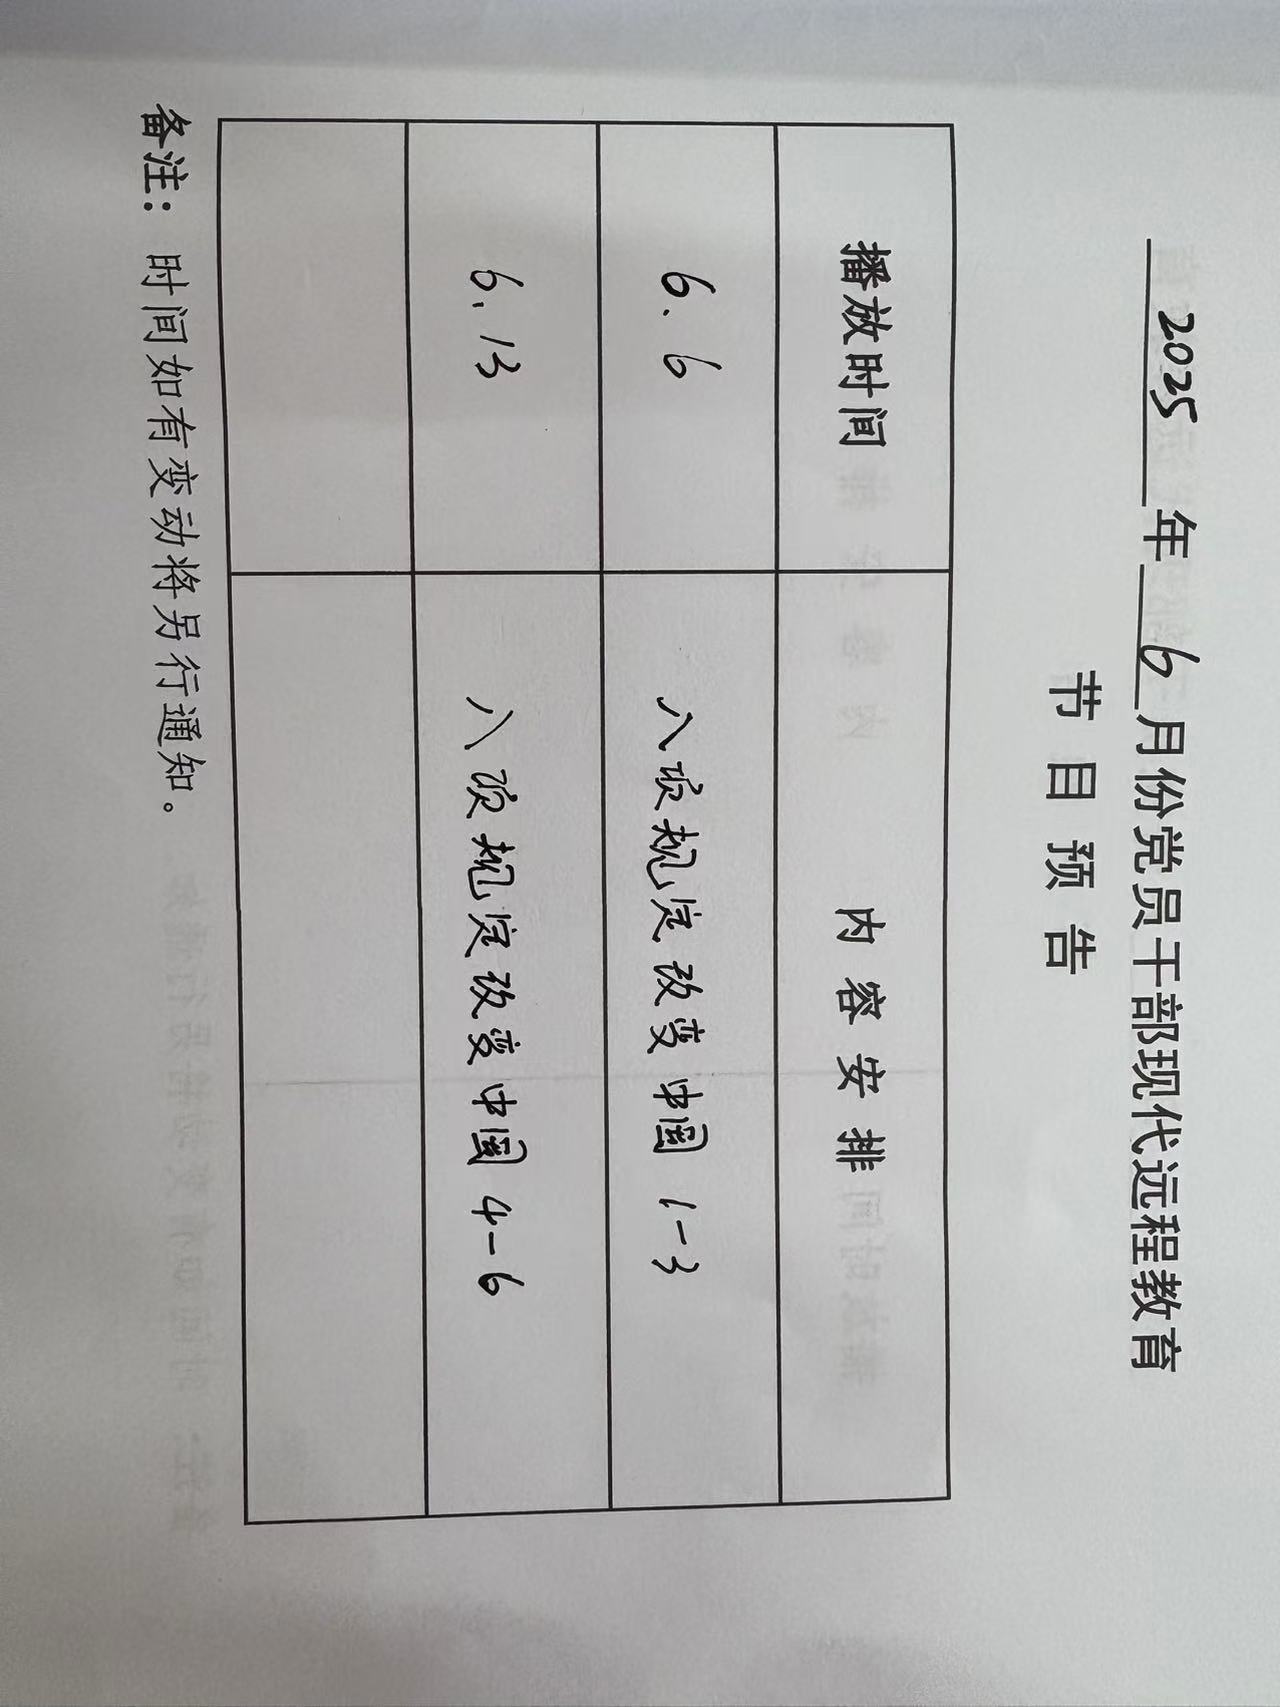 2025年6月份党员干部现代远程教育
节目预告
播放时间 内容安排
6.6 八项规定改变中国 1-3
6.13 八项规定改变中国 4-6
备注：时间如有变动将另行通知。